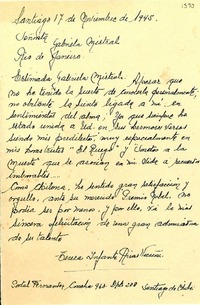 Santiago 17 de Noviembre de 1945.
Señorita
Gabriela Mistral
Rio de Janeiro
Estimada Gabriela Mistral: Apesar que
no he tenido la suerte de conocerla personalmente,
no obstante la siento ligada a mi en
sentimientos del alma, ya que siempre he
estado unida a Ud. en sus hermosos versos
siendo mis predilectos, muy especialmente en
mis
"El Ruego" y
a la
Muerte" que se asocian en mi vida a
imborrables...
Como chilena, he sentido gran satisfacción y
orgullo, ante su merecido Premio Nobel. No
podia ser por menos, y por ello, va la más
sincera felicitación de una gran admiradora
de su talento
Teresa Infante
Santiago de Chile